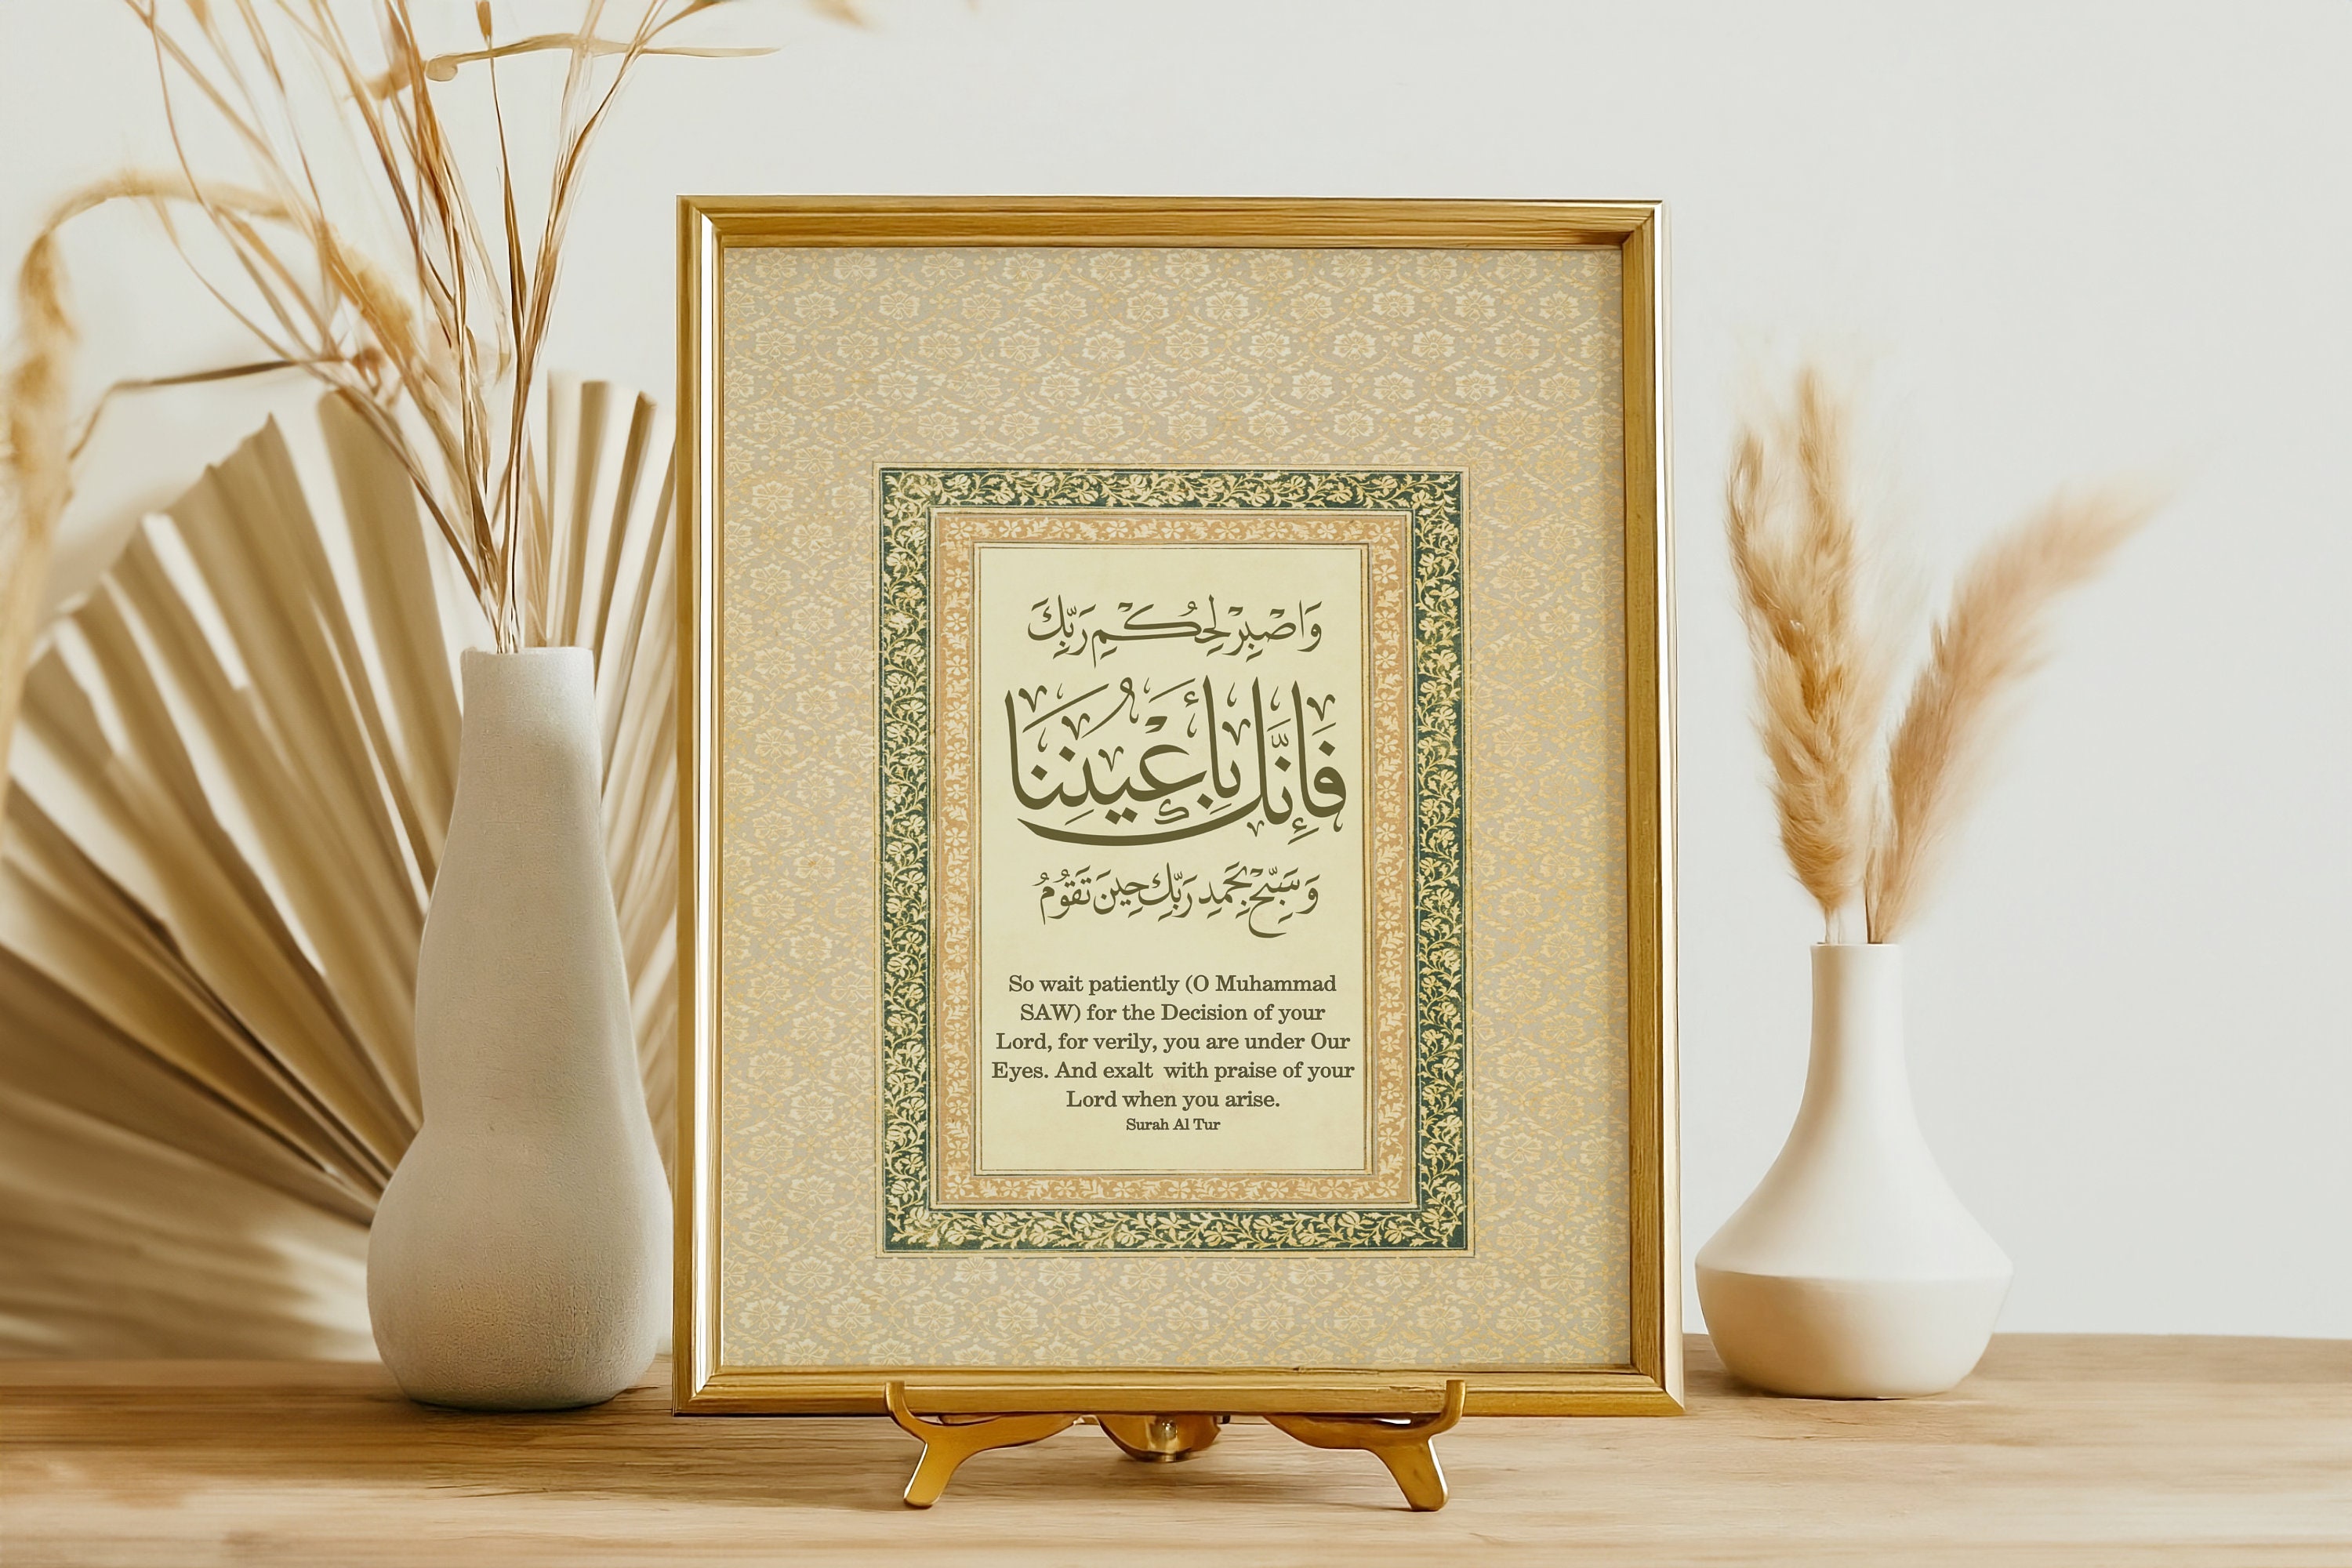 وَاصْبِرْ لِحُكْمِ رَبِّكَ
فَإِنَّكَ بِأَعْيُنِنَا
وَسَبِّحْ بِحَمْدِ رَبِّكَ حِينَ تَقُومُ
So wait patiently (O Muhammad
SAW) for the Decision of your
Lord, for verily, you are under Our
Eyes. And exalt with praise of your
Lord when you arise.
Surah Al Tur